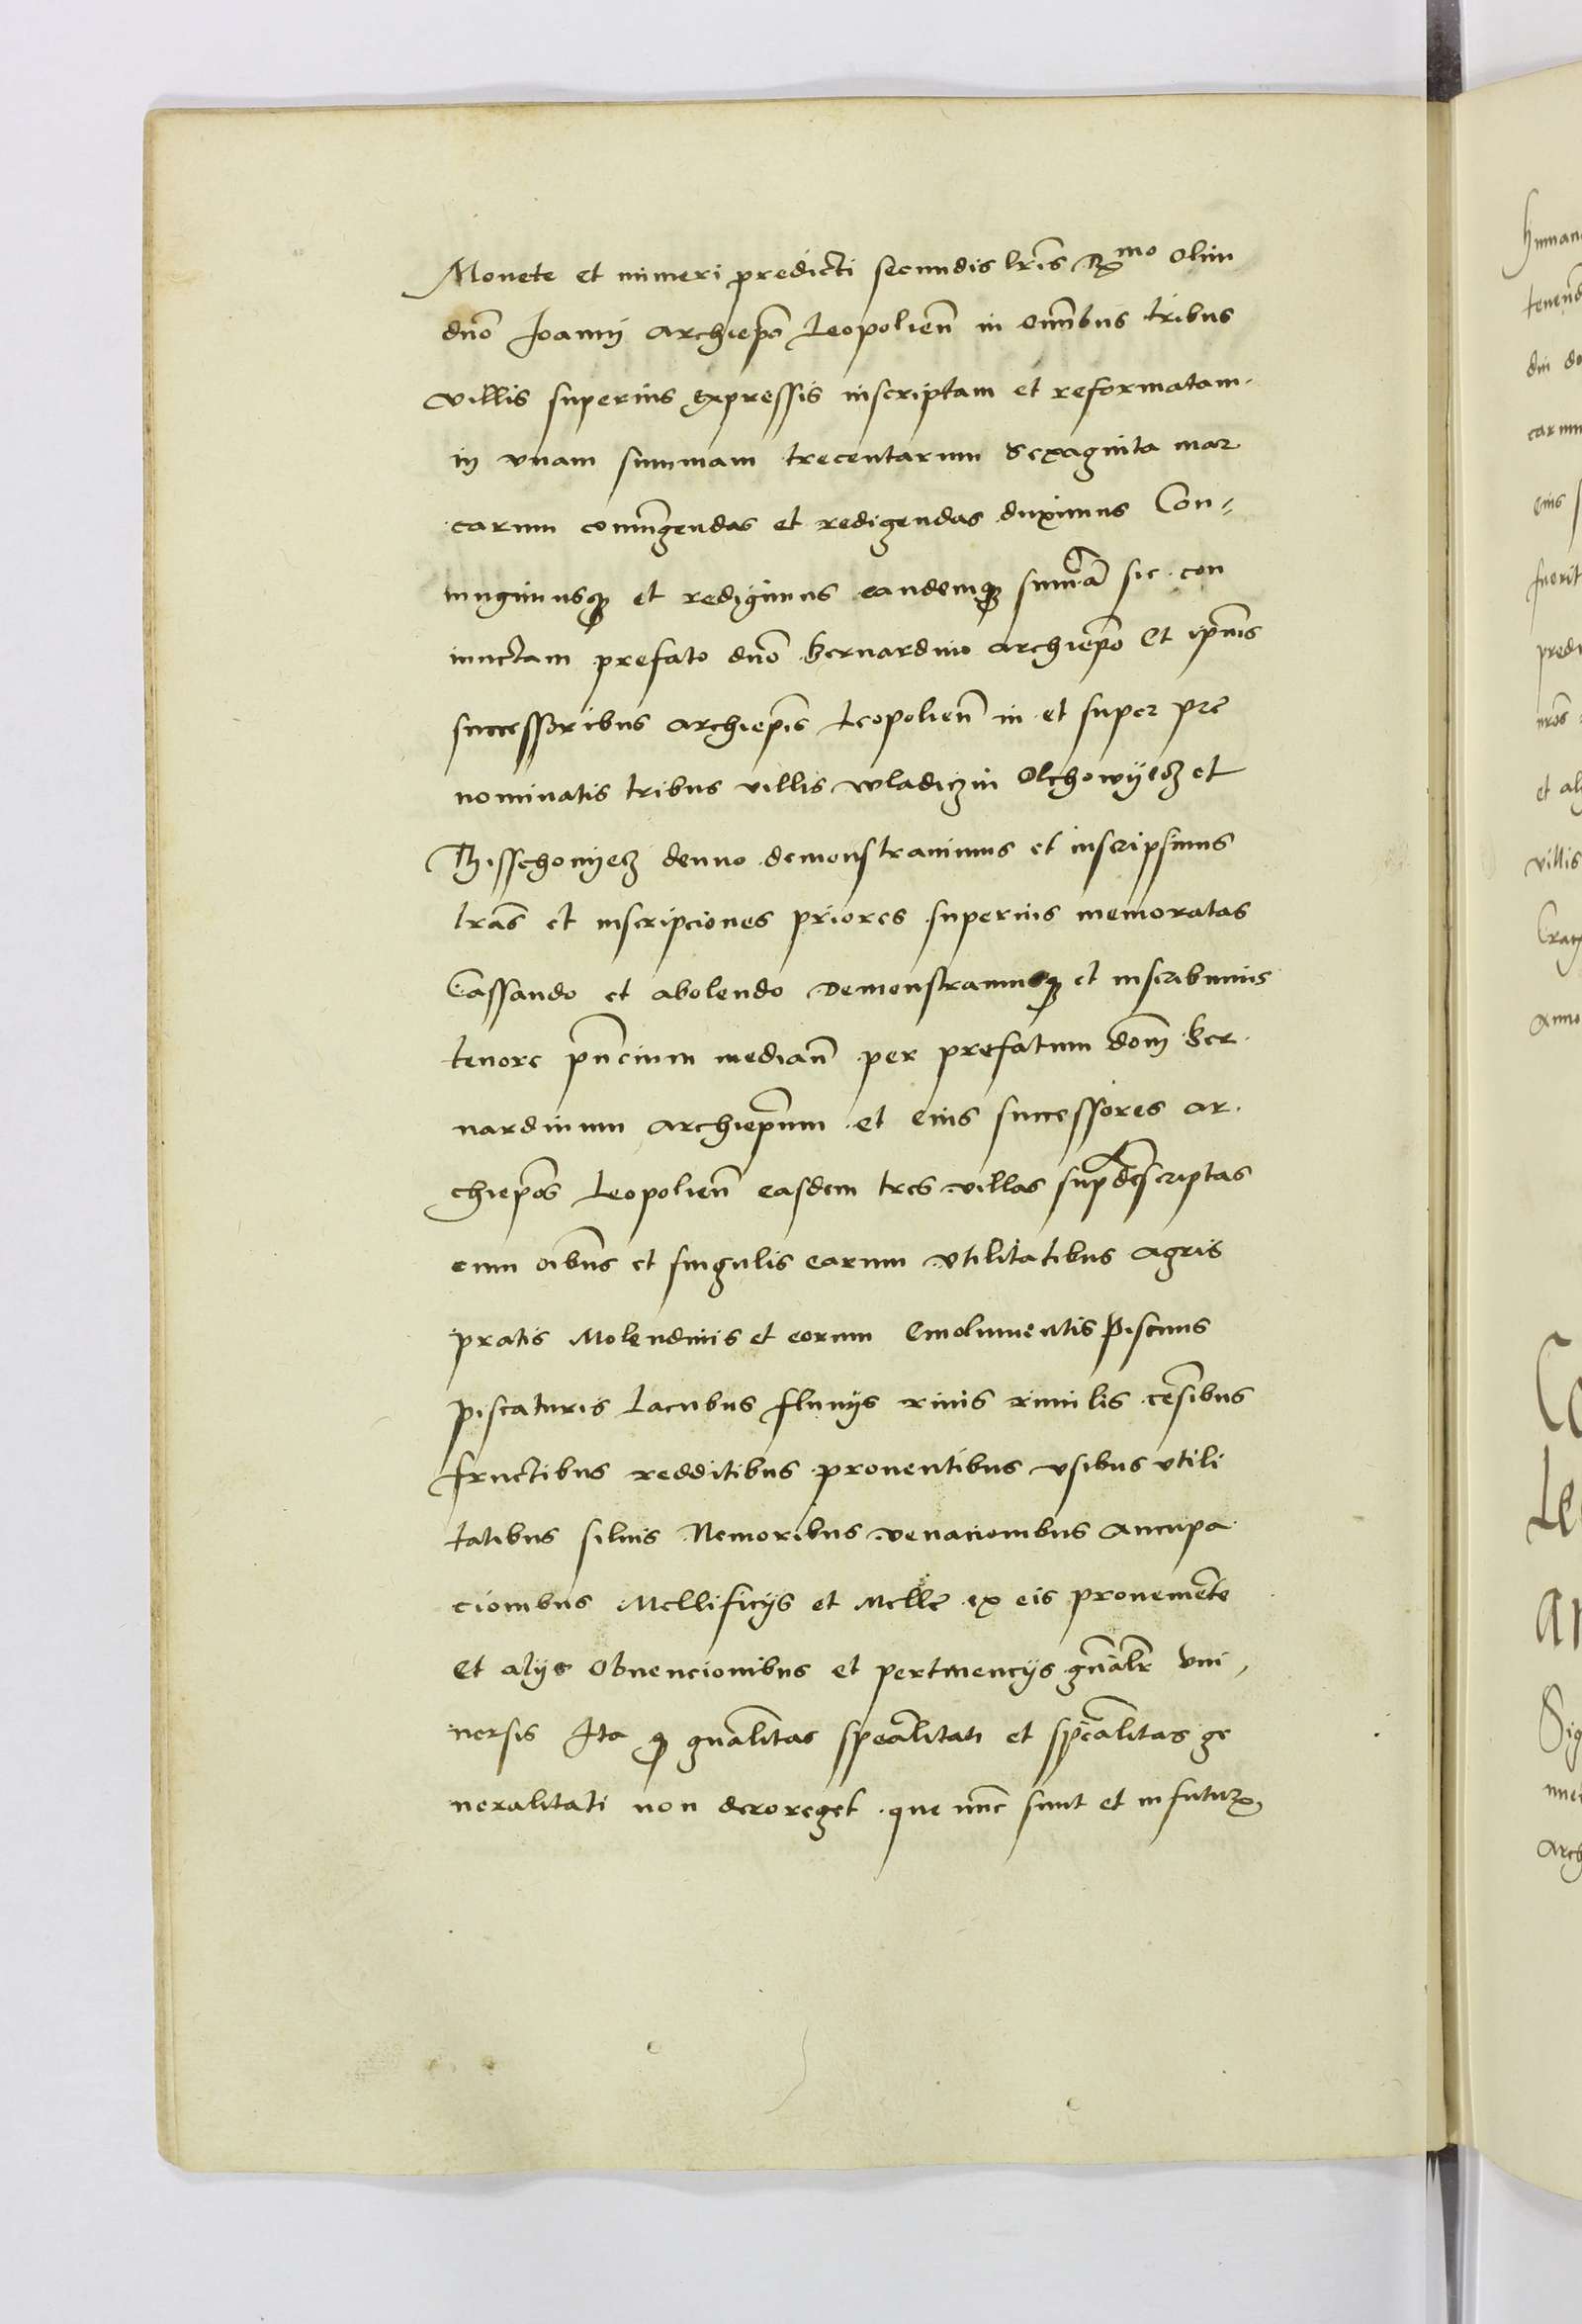 Monete et numeri predicti secundis lris Rmo olim
dno Joanni archiepo Leopolien in omnibus tribus
villis superius expressis inscriptam et reformatam
in vnam summam trecentarum sexaginta mar
carum coniungendas et redigendas duximus Con-
iungimusq et redigimus eandemq summa sic con
iunctam prefato dno Bernardino archiepo et ipsius
successoribus archiepis Leopolien in et super pre
nominatis tribus villis wladiczin Olchowyecz et
Thisschowyecz denuo demonstrauimus et inscripsimus
lras et inscripciones priores superius memoratas
Cassando et abolendo Demonstramusq et inscribimus
tenore pncium median per prefatum dom Ber
nardinum archiepum et eius successores ar
chiepos Leopolien easdem tres villas supdescriptas
cum oibus et singulis earum vtilitatibus agris
pratis Molendinis et eorum Emolumentis Piscinis
piscaturis Lacubus fluuys riuis riuulis censibus
fructibus redditibus prouentibus vsibus vtili
tatibus siluis Nemoribus venacionibus aucupa
cionibus Mellificys et Melle ex eis proueniente
et alys obuencionibus et pertinencys gnalr vni,
uersis Ita q gnalitas spealitati et specalitas ge
neralitati non deroreget que nunc sunt et in futur